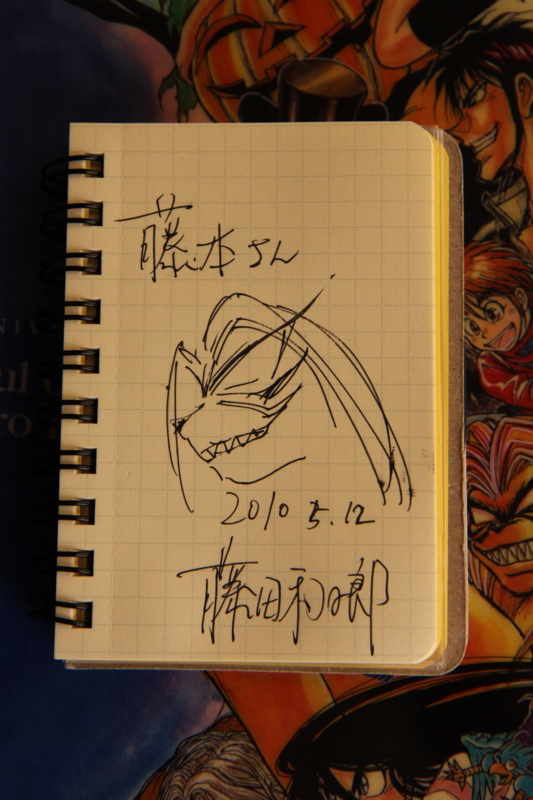 藤本さん
2010 5.12
藤田和日郎